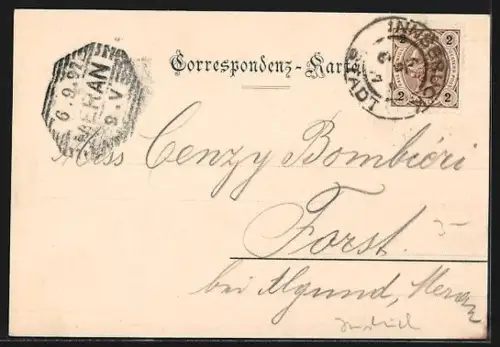 Correspondenz-Karte
INNSBRUCK
STADT
2 2
2 2
MERAN
6.9.97
9-V
Miss Cenzy Bombiéri
Forst.
bei Algund, Meran